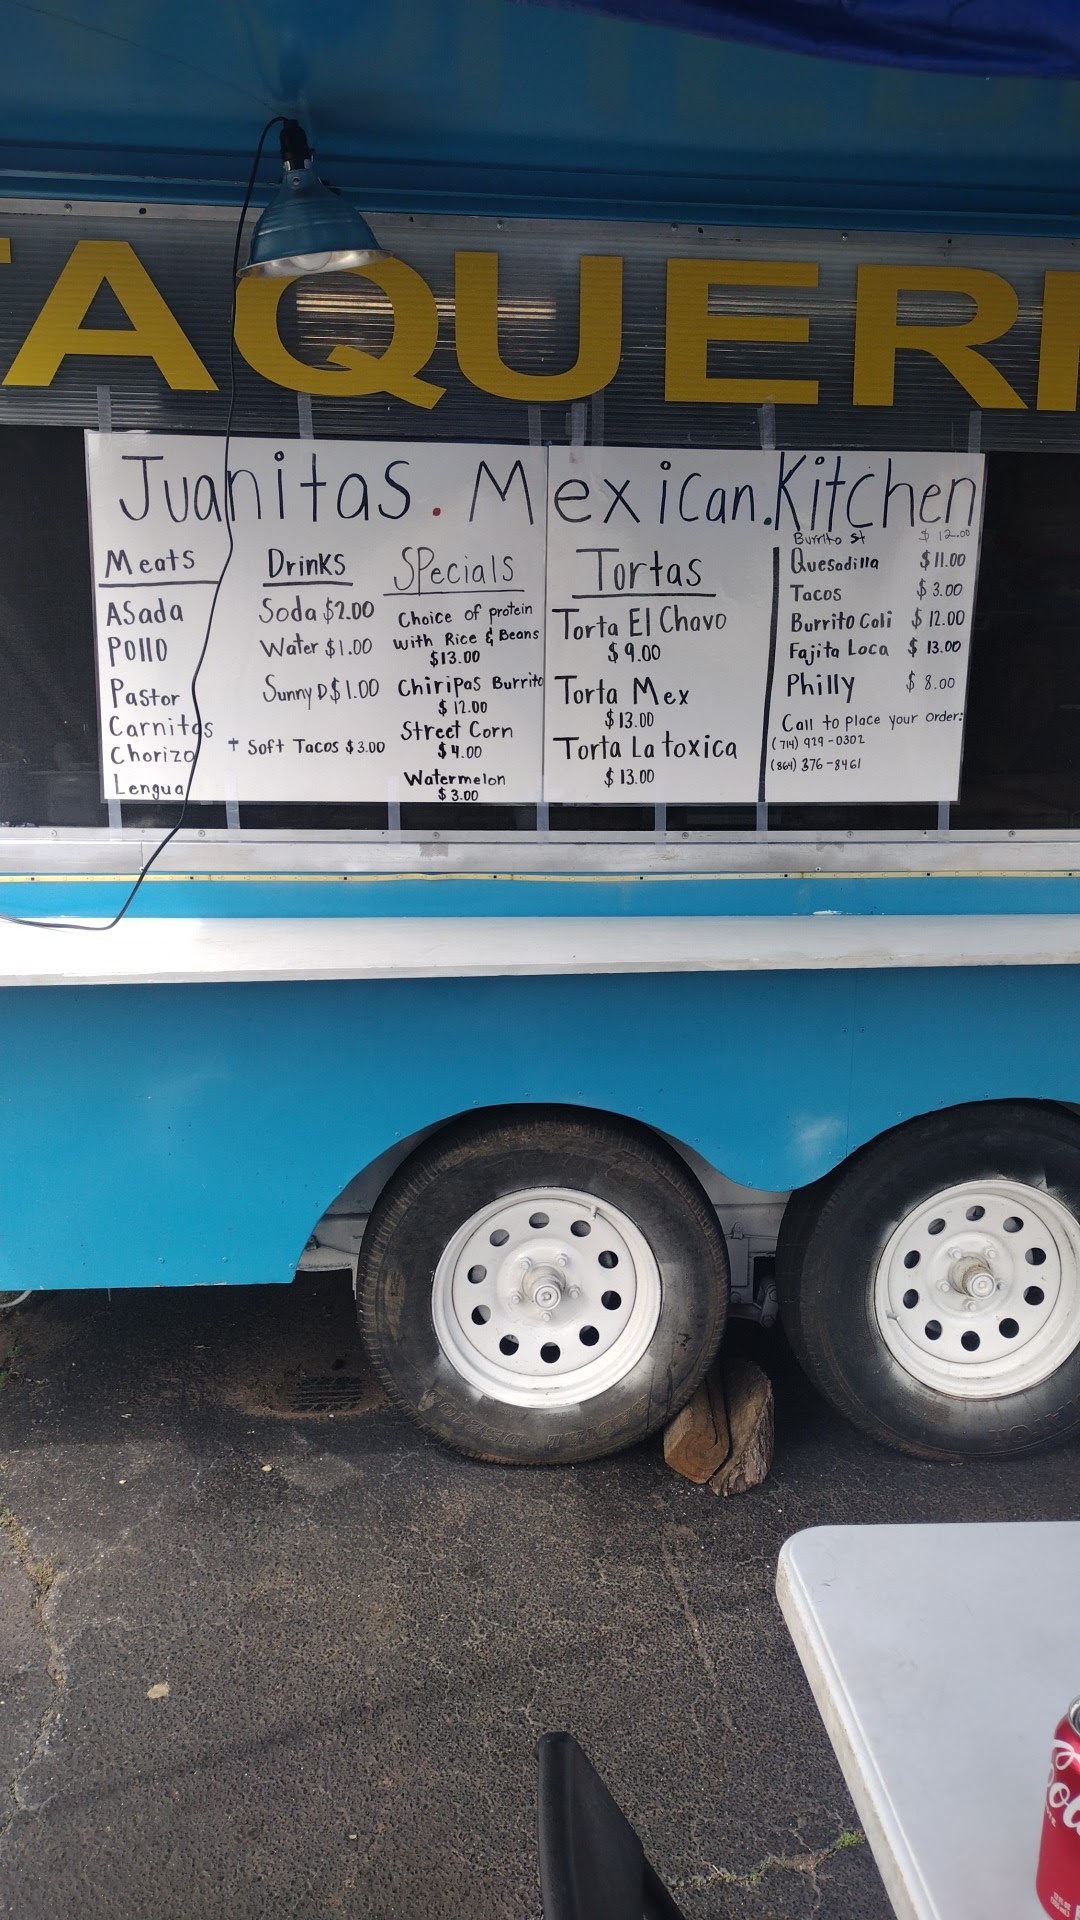 TAQUERI
Juanitas. Mexican. Kitchen
Meats
Asada
Pollo
Pastor
Carnitas
Chorizo
Lengua
Drinks
Soda $2.00
Water $1.00
Sunny D $1.00
+ Soft Tacos $3.00
Specials
Choice of protein
with Rice & Beans
$13.00
Chiripas Burrito
$12.00
Street Corn
$4.00
Watermelon
$3.00
Tortas
Torta El Chavo
$9.00
Torta Mex
$13.00
Torta La toxica
$13.00
Burrito St $12.00
Quesadilla $11.00
Tacos $3.00
Burrito Cali $12.00
Fajita Loca $13.00
Philly $8.00
Call to place your order:
(714) 929-0302
(864) 376-8461